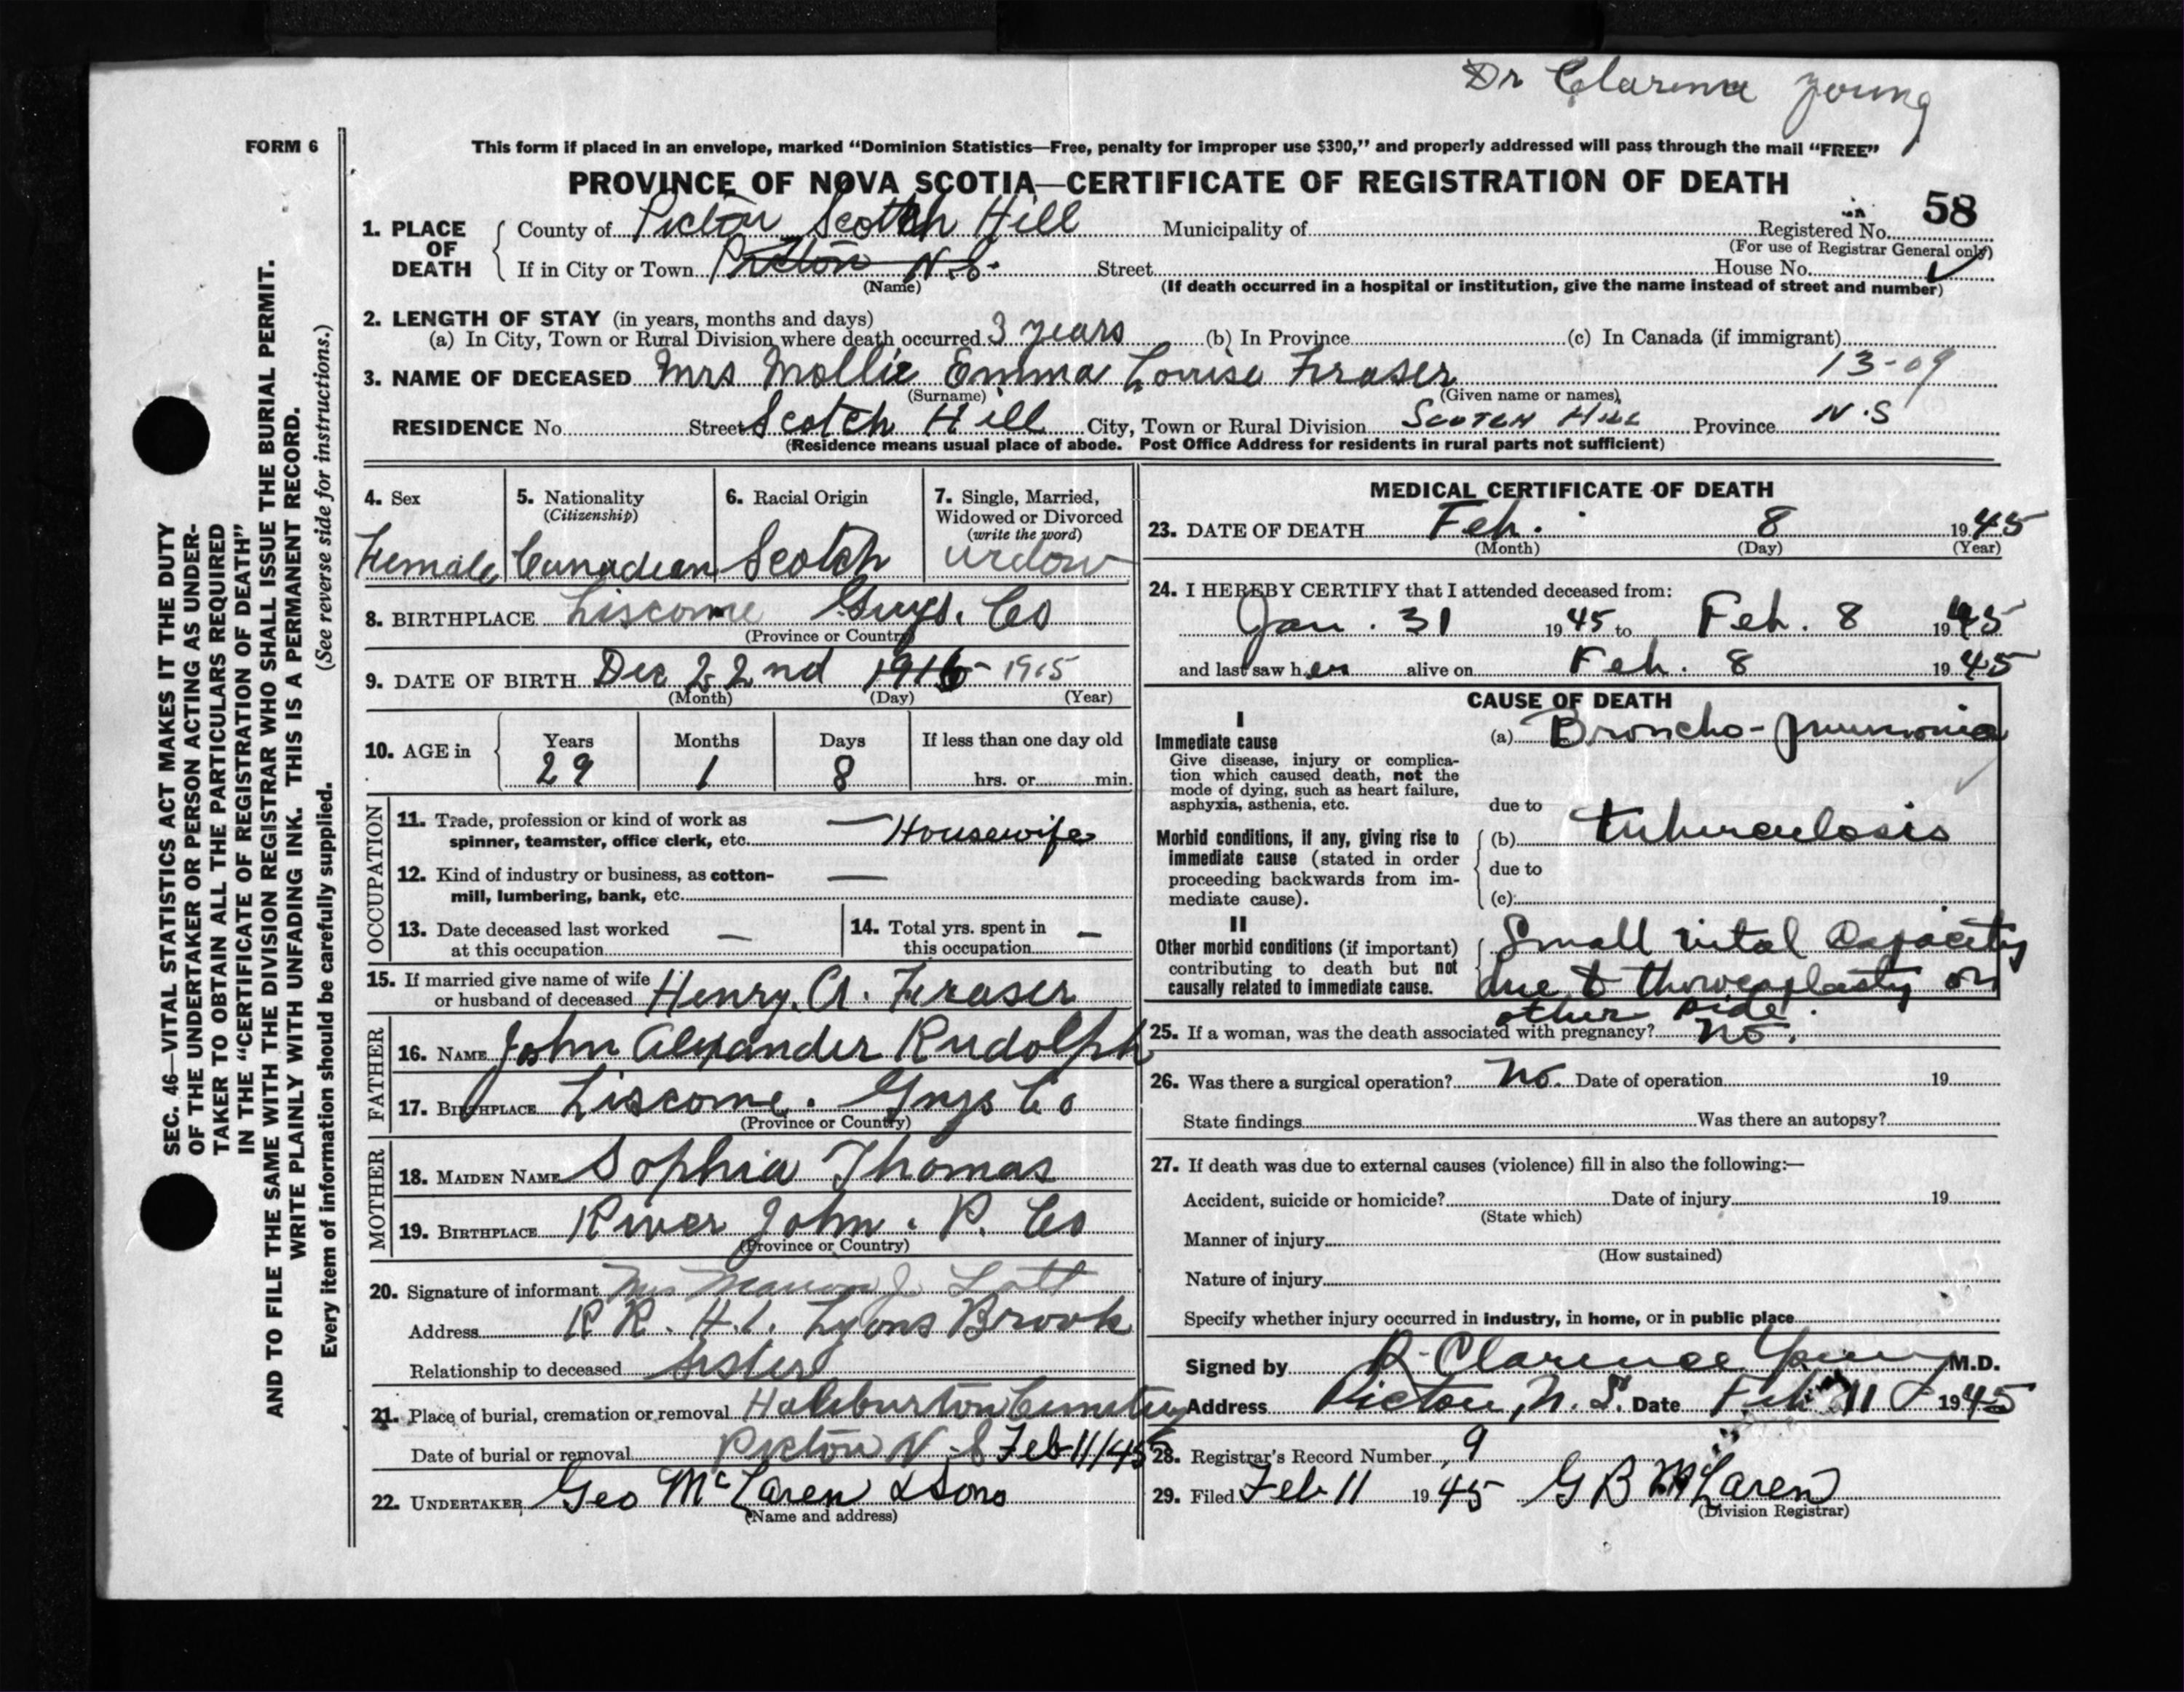 Dr Clarence Young
FORM 6
This form if placed in an envelope, marked "Dominion Statistics—Free, penalty for improper use $300," and properly addressed will pass through the mail "FREE"
PROVINCE OF NOVA SCOTIA—CERTIFICATE OF REGISTRATION OF DEATH
58
1. PLACE OF DEATH
County of Pictou Scotch Hill Municipality of Registered No.
(For use of Registrar General only)
If in City or Town Pictou N.S. Street House No.
(Name) (If death occurred in a hospital or institution, give the name instead of street and number)
2. LENGTH OF STAY (in years, months and days)
(a) In City, Town or Rural Division where death occurred 3 years (b) In Province (c) In Canada (if immigrant)
3. NAME OF DECEASED Mrs Mollie Emma Louise Fraser 13-09
(Surname) (Given name or names)
RESIDENCE No. Street Scotch Hill City, Town or Rural Division Scotch Hill Province N.S
(Residence means usual place of abode. Post Office Address for residents in rural parts not sufficient)
SEC. 46—VITAL STATISTICS ACT MAKES IT THE DUTY
OF THE UNDERTAKER OR PERSON ACTING AS UNDER-
TAKER TO OBTAIN ALL THE PARTICULARS REQUIRED
IN THE "CERTIFICATE OF REGISTRATION OF DEATH"
AND TO FILE THE SAME WITH THE DIVISION REGISTRAR WHO SHALL ISSUE THE BURIAL PERMIT.
WRITE PLAINLY WITH UNFADING INK. THIS IS A PERMANENT RECORD.
Every item of information should be carefully supplied. (See reverse side for instructions.)
4. Sex
Female
5. Nationality
(Citizenship)
Canadian
6. Racial Origin
Scotch
7. Single, Married,
Widowed or Divorced
(write the word)
widow
8. BIRTHPLACE Liscome Guys. Co
(Province or Country)
9. DATE OF BIRTH Dec 22nd 1916 - 1915
(Month) (Day) (Year)
10. AGE in Years Months Days If less than one day old
29 1 8 hrs. or min.
OCCUPATION
11. Trade, profession or kind of work as
spinner, teamster, office clerk, etc. — Housewife
12. Kind of industry or business, as cotton-
mill, lumbering, bank, etc. —
13. Date deceased last worked
at this occupation —
14. Total yrs. spent in
this occupation —
15. If married give name of wife
or husband of deceased Henry. A. Fraser
FATHER
16. NAME John Alexander Rudolph
17. BIRTHPLACE Liscome. Guys Co
(Province or Country)
MOTHER
18. MAIDEN NAME Sophia Thomas
19. BIRTHPLACE River John. P. Co
(Province or Country)
20. Signature of informant Mrs J.
Address R R. #1. Lyons Brook
Relationship to deceased Sister
21. Place of burial, cremation or removal Haliburton Cemetery
Date of burial or removal Pictou N.S Feb 11/45
22. UNDERTAKER Geo McLaren & Sons
(Name and address)
MEDICAL CERTIFICATE OF DEATH
23. DATE OF DEATH Feb. 8 1945
(Month) (Day) (Year)
24. I HEREBY CERTIFY that I attended deceased from:
Jan. 31 1945 to Feb. 8 1945
and last saw her alive on Feb. 8 1945
CAUSE OF DEATH
I
Immediate cause (a) Broncho-pneumonia
Give disease, injury or complica-
tion which caused death, not the
mode of dying, such as heart failure,
asphyxia, asthenia, etc.
due to
Morbid conditions, if any, giving rise to (b) tuberculosis
immediate cause (stated in order
proceeding backwards from im-
mediate cause).
due to
(c)
II
Other morbid conditions (if important)
contributing to death but not
causally related to immediate cause.
Small vital capacity
due to thoracoplasty on
other side.
25. If a woman, was the death associated with pregnancy? no.
26. Was there a surgical operation? no. Date of operation 19
State findings Was there an autopsy?
27. If death was due to external causes (violence) fill in also the following:—
Accident, suicide or homicide? Date of injury 19
(State which)
Manner of injury
(How sustained)
Nature of injury
Specify whether injury occurred in industry, in home, or in public place
Signed by Clarence Young M.D.
Address Pictou, N.S. Date Feb 11 1945
28. Registrar's Record Number 9
29. Filed Feb 11 1945 G B McLaren
(Division Registrar)